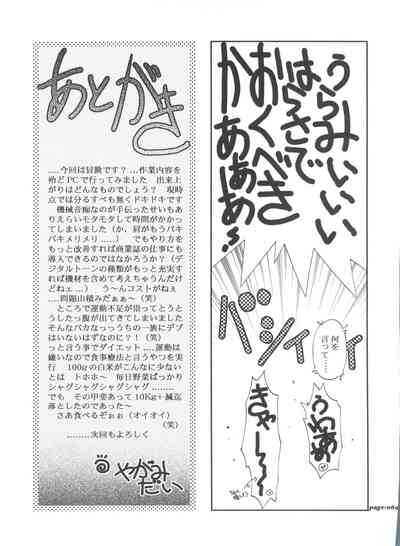 うらみぃいぃ
はらさで
おくべき
かあぁぁ～
バシィィ
何を
言って……
うわあ
きゃーー
page-064
あとがき
……今回は冒険です？…作業内容を
殆どPCで行ってみました　出来上
がりはどんなものでしょう？　現時
点では分るすべも無くドキドキです
機械音痴なのが手伝ったせいもあ
りえらいモタモタして時間がかかっ
てしまいました（か、肩がもうバキ
バキメリメリ……）　でもやり方を
もっと改善すれば商業誌の仕事にも
導入できるのではなかろうか？（デ
ジタルトーンの種類がもっと充実す
れば機材を含めて考えちゃうんだけ
どねェ…）　う～んコストがねぇ
……問題山積みだぁぁ～（笑）
ところで運動不足が祟ってとうと
うしたっ腹が出てきてしまいました
そんなバカなっっうちの一族にデブ
はいないはずなのに？！（笑）
っと言う事でダイエット……運動は
嫌いなので食事療法と言うやつを実
行　100gの白米がこんなに少ない
とは　トホホ～　毎日野菜ばっかり
シャグシャグシャグシャグ………
でも　その甲斐あって10Kg＋減迄
落としたのであった～
さあ食べるぞぉぉ（オイオイ）
（笑）
………次回もよろしく
やがみ
だい